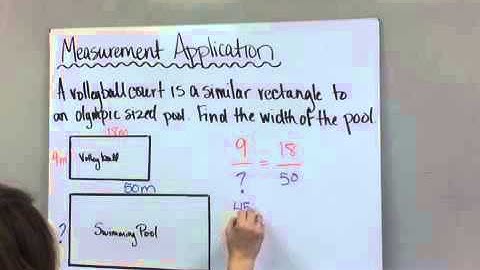 Measurement Application
A volleyball court is a similar rectangle to
an olympic sized pool. Find the width of the pool
18m
9m
Volleyball
50m
?
Swimming Pool
9 = 18
? 50
45